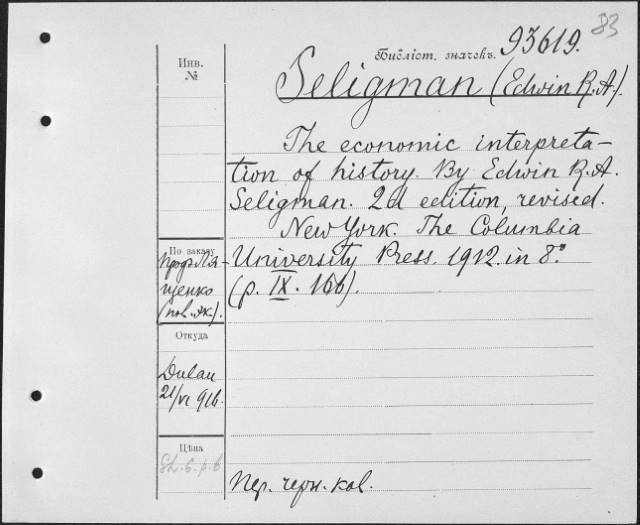 83
Библіот. значекъ. 93619.
Инв. №
Seligman (Edwin R.A.).
The economic interpreta-
tion of history. By Edwin R.A.
Seligman. 2d edition, revised.
New York. The Columbia
University Press. 1912. in 8º
(p. IX. 166).
По заказу
проф. Ля-
щенко
(пол. эк.).
Откуда
Dulau
21/VI 916.
Цѣна
Sh. 6. p. 6
Пер. черн. кол.